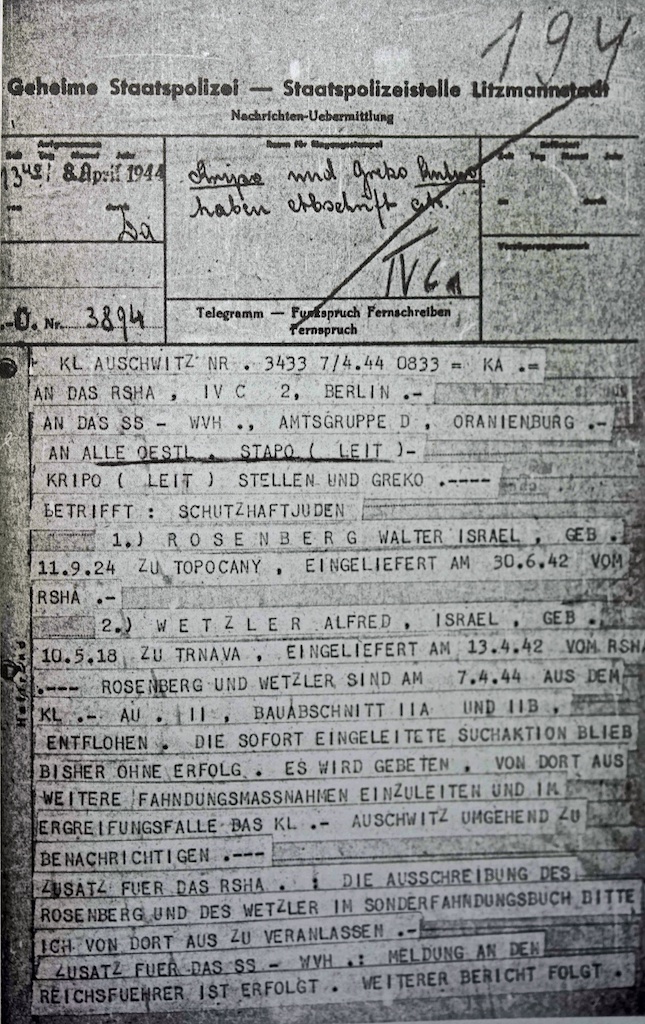 194
Geheime Staatspolizei — Staatspolizeistelle Litzmannstadt
Nachrichten-Uebermittlung
Aufgenommen
Zeit Tag Monat Jahr
8. April 1944
von durch
Raum für Eingangsstempel
Kripo und Greko
haben Abschrift
IV 6a
Befördert
Zeit Tag Monat Jahr
an durch
Verzögerungsvermerk
Nr. 3894
Telegramm — Funkspruch Fernschreiben
Fernspruch
KL AUSCHWITZ NR . 3433 7/4.44 0833 = KA .=
AN DAS RSHA , IV C 2, BERLIN .-
AN DAS SS - WVH ., AMTSGRUPPE D , ORANIENBURG .-
AN ALLE OESTL . STAPO ( LEIT )-
KRIPO ( LEIT ) STELLEN UND GREKO .----
BETRIFFT : SCHUTZHAFTJUDEN
1.) R O S E N B E R G WALTER ISRAEL , GEB .
11.9.24 ZU TOPOCANY , EINGELIEFERT AM 30.6.42 VOM
RSHA .-
2.) W E T Z L E R ALFRED , ISRAEL , GEB .
10.5.18 ZU TRNAVA , EINGELIEFERT AM 13.4.42 VOM RSHA
.--- ROSENBERG UND WETZLER SIND AM 7.4.44 AUS DEM
KL .- AU . II , BAUABSCHNITT IIA UND IIB ,
ENTFLOHEN . DIE SOFORT EINGELEITETE SUCHAKTION BLIEB
BISHER OHNE ERFOLG . ES WIRD GEBETEN , VON DORT AUS
WEITERE FAHNDUNGSMASSNAHMEN EINZULEITEN UND IM
ERGREIFUNGSFALLE DAS KL .- AUSCHWITZ UMGEHEND ZU
BENACHRICHTIGEN .---
ZUSATZ FUER DAS RSHA . : DIE AUSSCHREIBUNG DES
ROSENBERG UND DES WETZLER IM SONDERFAHNDUNGSBUCH BITTE
ICH VON DORT AUS ZU VERANLASSEN .-
ZUSATZ FUER DAS SS - WVH .: MELDUNG AN DEN
REICHSFUEHRER IST ERFOLGT . WEITERER BERICHT FOLGT .